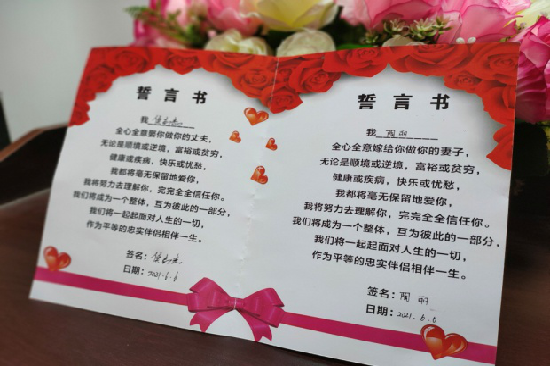 誓言书
我
全心全意娶你做你的丈夫,
无论是顺境或逆境,富裕或贫穷,
健康或疾病,快乐或忧愁,
我都将毫无保留地爱你,
我将努力去理解你,完完全全信任你。
我们将成为一个整体,互为彼此的一部分,
我们将一起起面对人生的一切,
作为平等的忠实伴侣相伴一生。
签名:
日期:2021.6.6
誓言书
我 陶明
全心全意嫁给你做你的妻子,
无论是顺境或逆境,富裕或贫穷,
健康或疾病,快乐或忧愁,
我都将毫无保留地爱你,
我将努力去理解你,完完全全信任你。
我们将成为一个整体,互为彼此的一部分,
我们将一起起面对人生的一切,
作为平等的忠实伴侣相伴一生。
签名:陶明
日期:2021.6.6